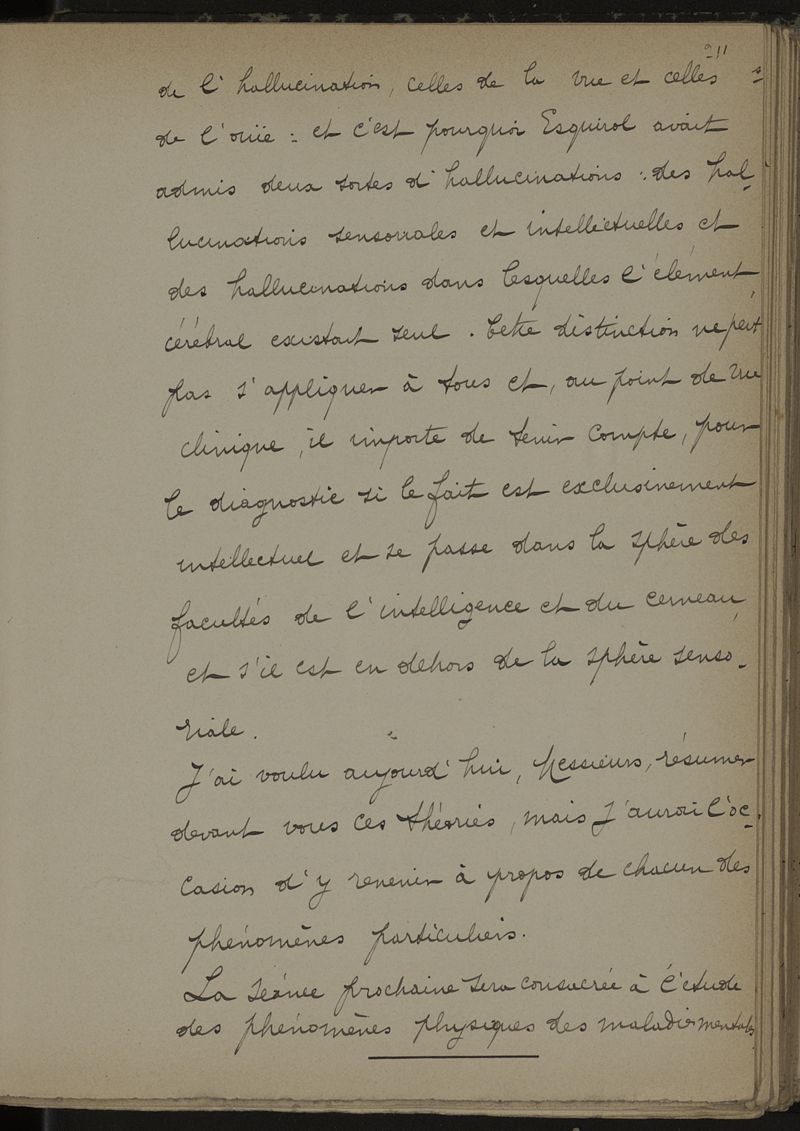 211
de l'hallucination, celles de la vue et celles
de l'ouïe : et c'est pourquoi Esquirol avait
admis deux sortes d'hallucinations : des hal-
lucinations sensoriales et intellectuelles et
des hallucinations dans lesquelles l'élément
cérébral existait seul. Cette distinction ne peut
pas s'appliquer à tous et, au point de vue
clinique, il importe de tenir compte, pour
le diagnostic si le fait est exclusivement
intellectuel et se passe dans la sphère des
facultés de l'intelligence et du cerveau,
et s'il est en dehors de la sphère senso-
riale.
J'ai voulu aujourd'hui, Messieurs, résumer
devant vous ces théories, mais j'aurai l'oc-
casion d'y revenir à propos de chacun des
phénomènes particuliers.
La séance prochaine sera consacrée à l'étude
des phénomènes physiques des maladies mentales.